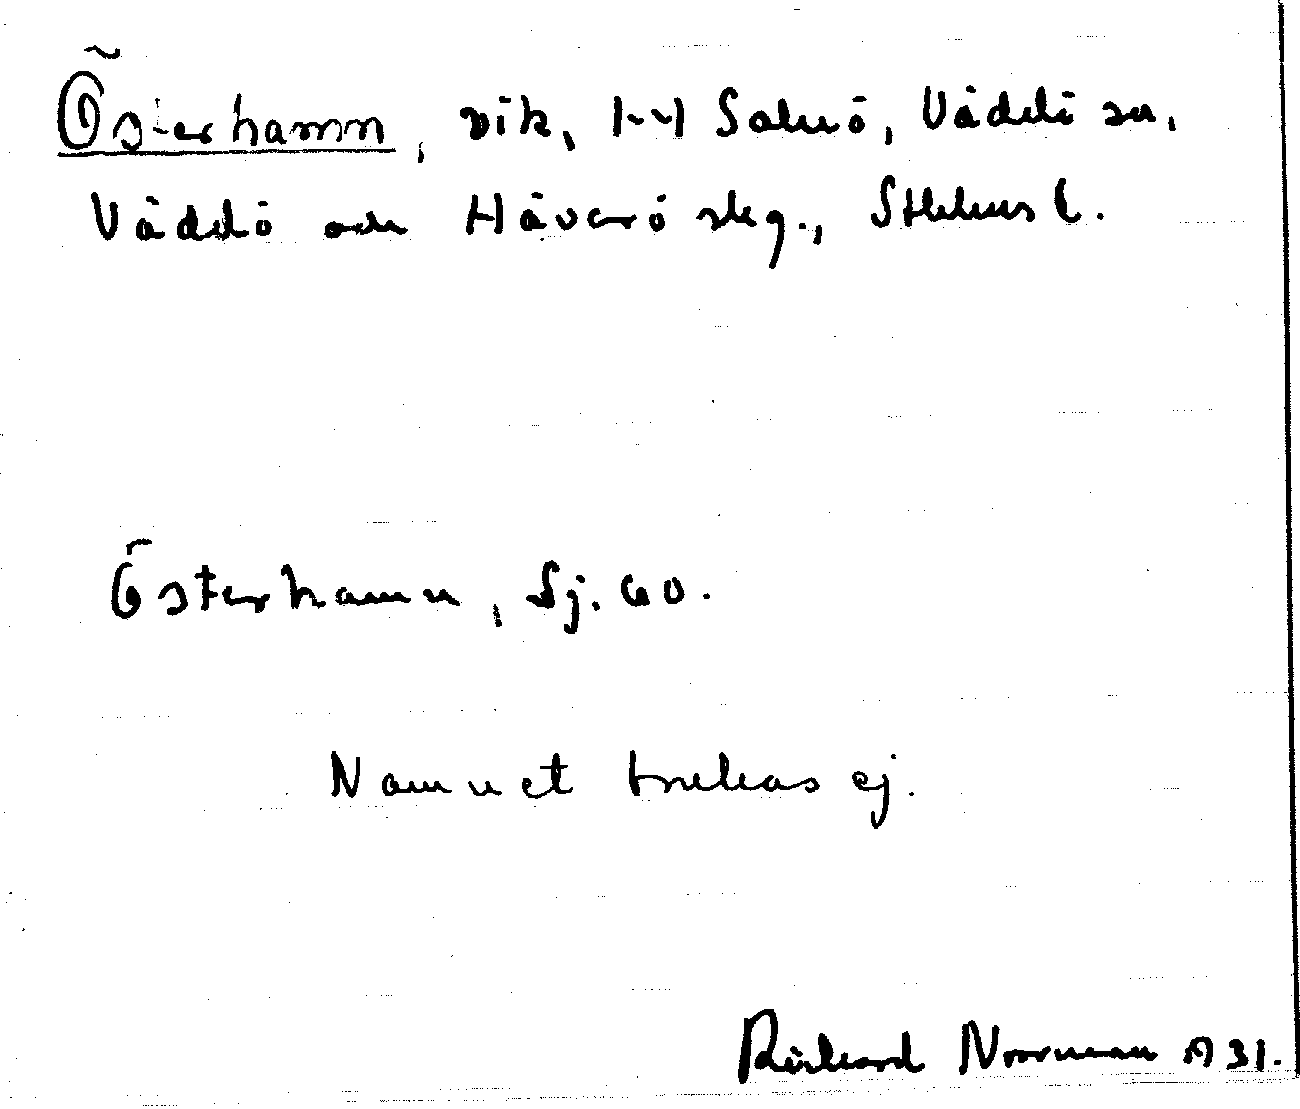 Österhamn, vik, H-H Salnö, Väddö sn,
Väddö och Häverö skg., Sthlms l.
Österhamn, Sj. 60.
Namnet brukas ej.
Rickard Norrman 1931.